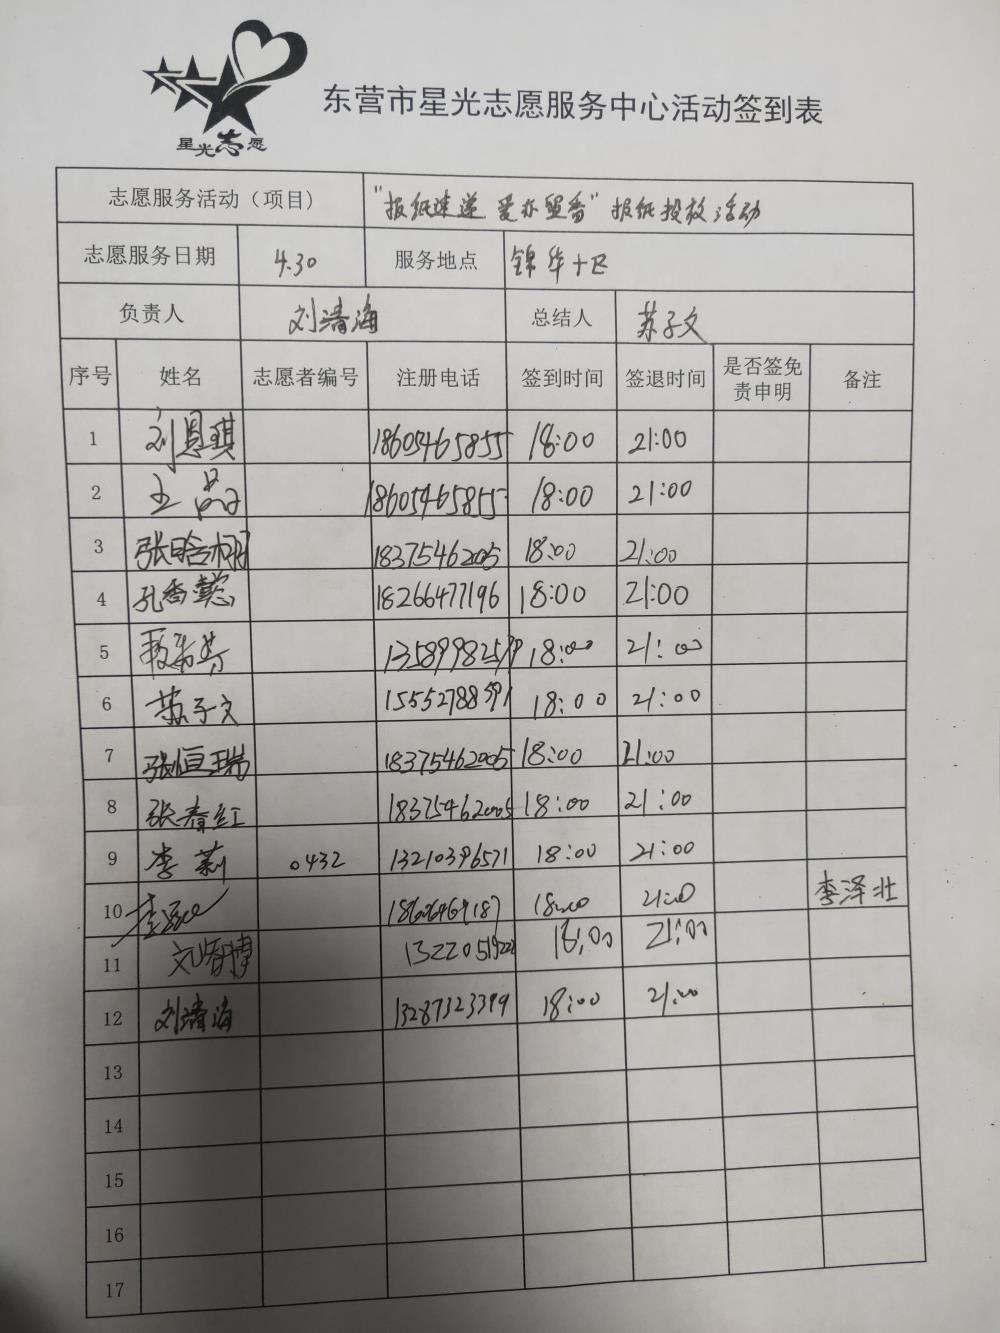 星光志愿
东营市星光志愿服务中心活动签到表
志愿服务活动（项目） "报纸速递 爱亦留香"报纸投放活动
志愿服务日期 4.30 服务地点 锦华十区
负责人 刘清海 总结人 苏子文
序号 姓名 志愿者编号 注册电话 签到时间 签退时间 是否签免责申明 备注
1 刘恩琪 18605465855 18:00 21:00
2 王晶 18605465855 18:00 21:00
3 张晗栩 18375462005 18:00 21:00
4 孔香懿 18266477196 18:00 21:00
5 18:00 21:00
6 苏子文 15552788591 18:00 21:00
7 张恒瑞 18375462005 18:00 21:00
8 张春红 18375462005 18:00 21:00
9 李莉 0432 13210396571 18:00 21:00
10 18:00 21:00 李泽壮
11 刘智博 18:00 21:00
12 刘清海 13287323399 18:00 21:00
13
14
15
16
17